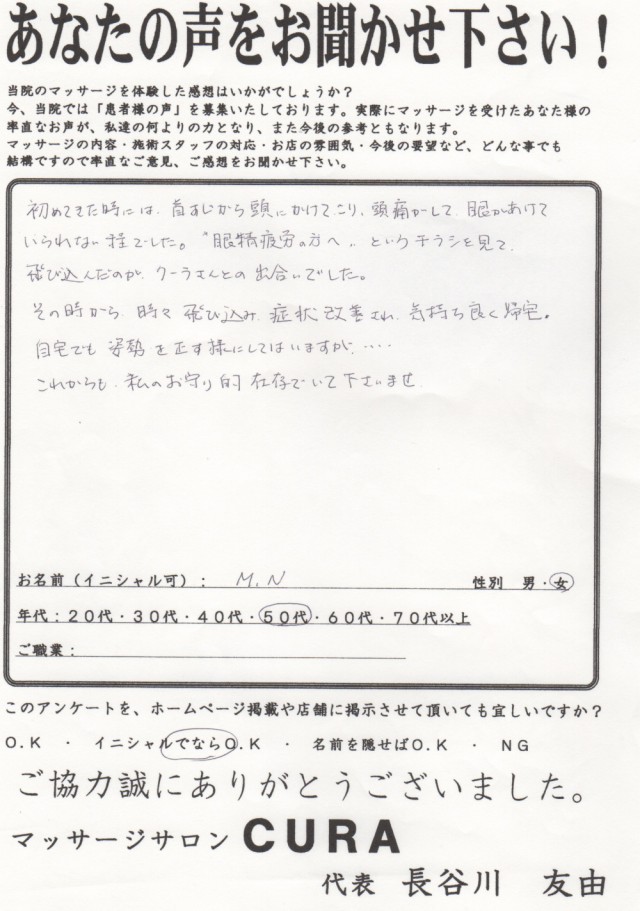 あなたの声をお聞かせ下さい！
当院のマッサージを体験した感想はいかがでしょうか？
今、当院では「患者様の声」を募集いたしております。実際にマッサージを受けたあなた様の
率直なお声が、私達の何よりの力となり、また今後の参考ともなります。
マッサージの内容・施術スタッフの対応・お店の雰囲気・今後の要望など、どんな事でも
結構ですので率直なご意見、ご感想をお聞かせ下さい。
初めてきた時には、首すじから頭にかけてこり、頭痛がして、眼があけて
いられない程でした。〝眼精疲労の方へ〟というチラシを見て、
飛び込んだのが、クーラさんとの出合いでした。
その時から、時々飛び込み、症状改善され、気持ち良く帰宅。
自宅でも姿勢を正す様にしてはいますが、‥‥
これからも、私のお守り的存存でいて下さいませ。
お名前（イニシャル可）： M.N 性別 男・女
年代：２０代・３０代・４０代・５０代・６０代・７０代以上
ご職業：
このアンケートを、ホームページ掲載や店舗に掲示させて頂いても宜しいですか？
Ｏ.Ｋ ・ イニシャルでならＯ.Ｋ ・ 名前を隠せばＯ.Ｋ ・ ＮＧ
ご協力誠にありがとうございました。
マッサージサロン CURA
代表 長谷川 友由